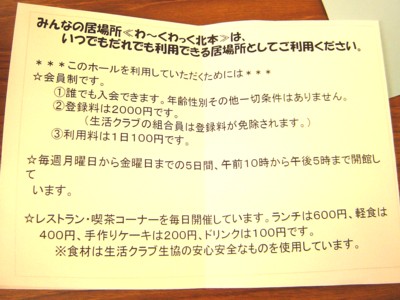 みんなの居場所≪わ～くわっく北本≫は、
いつでもだれでも利用できる居場所としてご利用ください。
＊＊＊このホールを利用していただくためには＊＊＊
☆会員制です。
①誰でも入会できます。年齢性別その他一切条件はありません。
②登録料は2000円です。
（生活クラブの組合員は登録料が免除されます。）
③利用料は1日100円です。
☆毎週月曜日から金曜日までの5日間、午前10時から午後5時まで開館し
て
います。
☆レストラン・喫茶コーナーを毎日開催しています。ランチは600円、軽食は
400円、手作りケーキは200円、ドリンクは100円です。
※食材は生活クラブ生協の安心安全なものを使用しています。